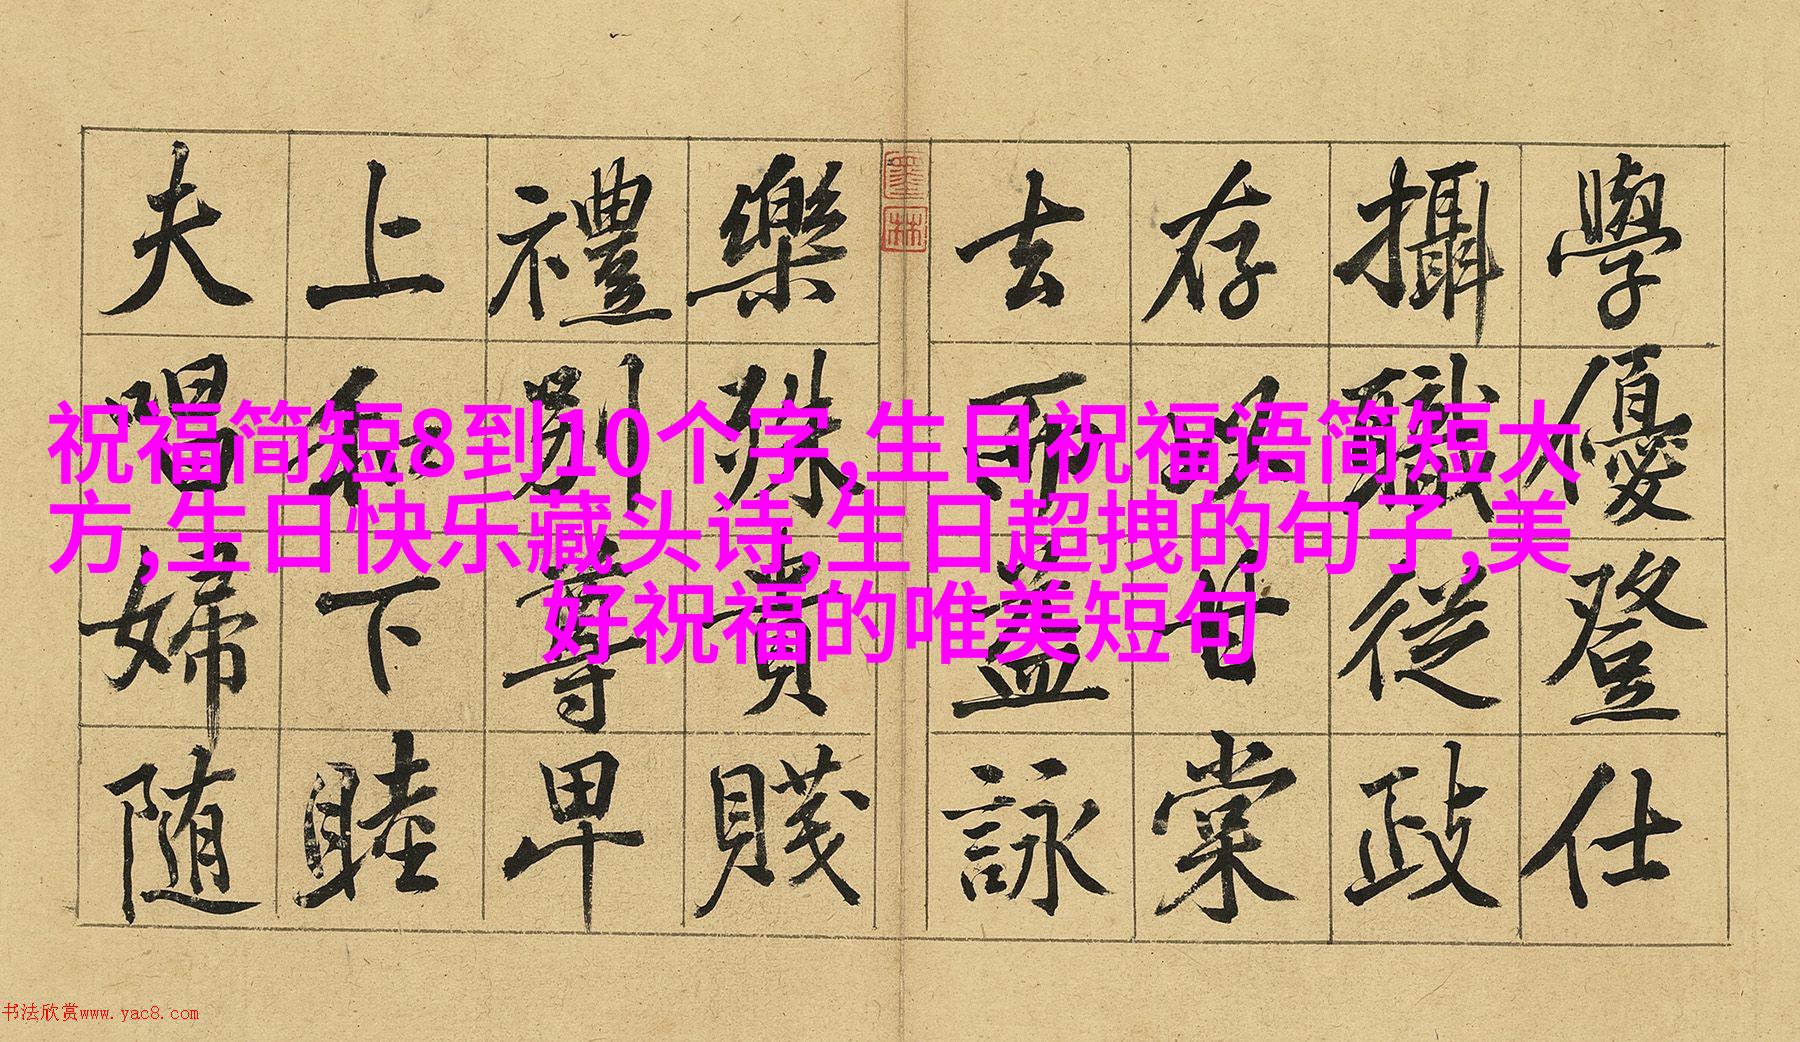 學優登仕
攝職從政
存以甘棠
去而益詠
樂殊貴賤
禮別尊卑
上和下睦
夫唱婦随
祝福简短8到10个字,生日祝福语简短大
方,生日快乐藏头诗,生日超拽的句子,美
好祝福的唯美短句
書法欣赏www.yac8.com